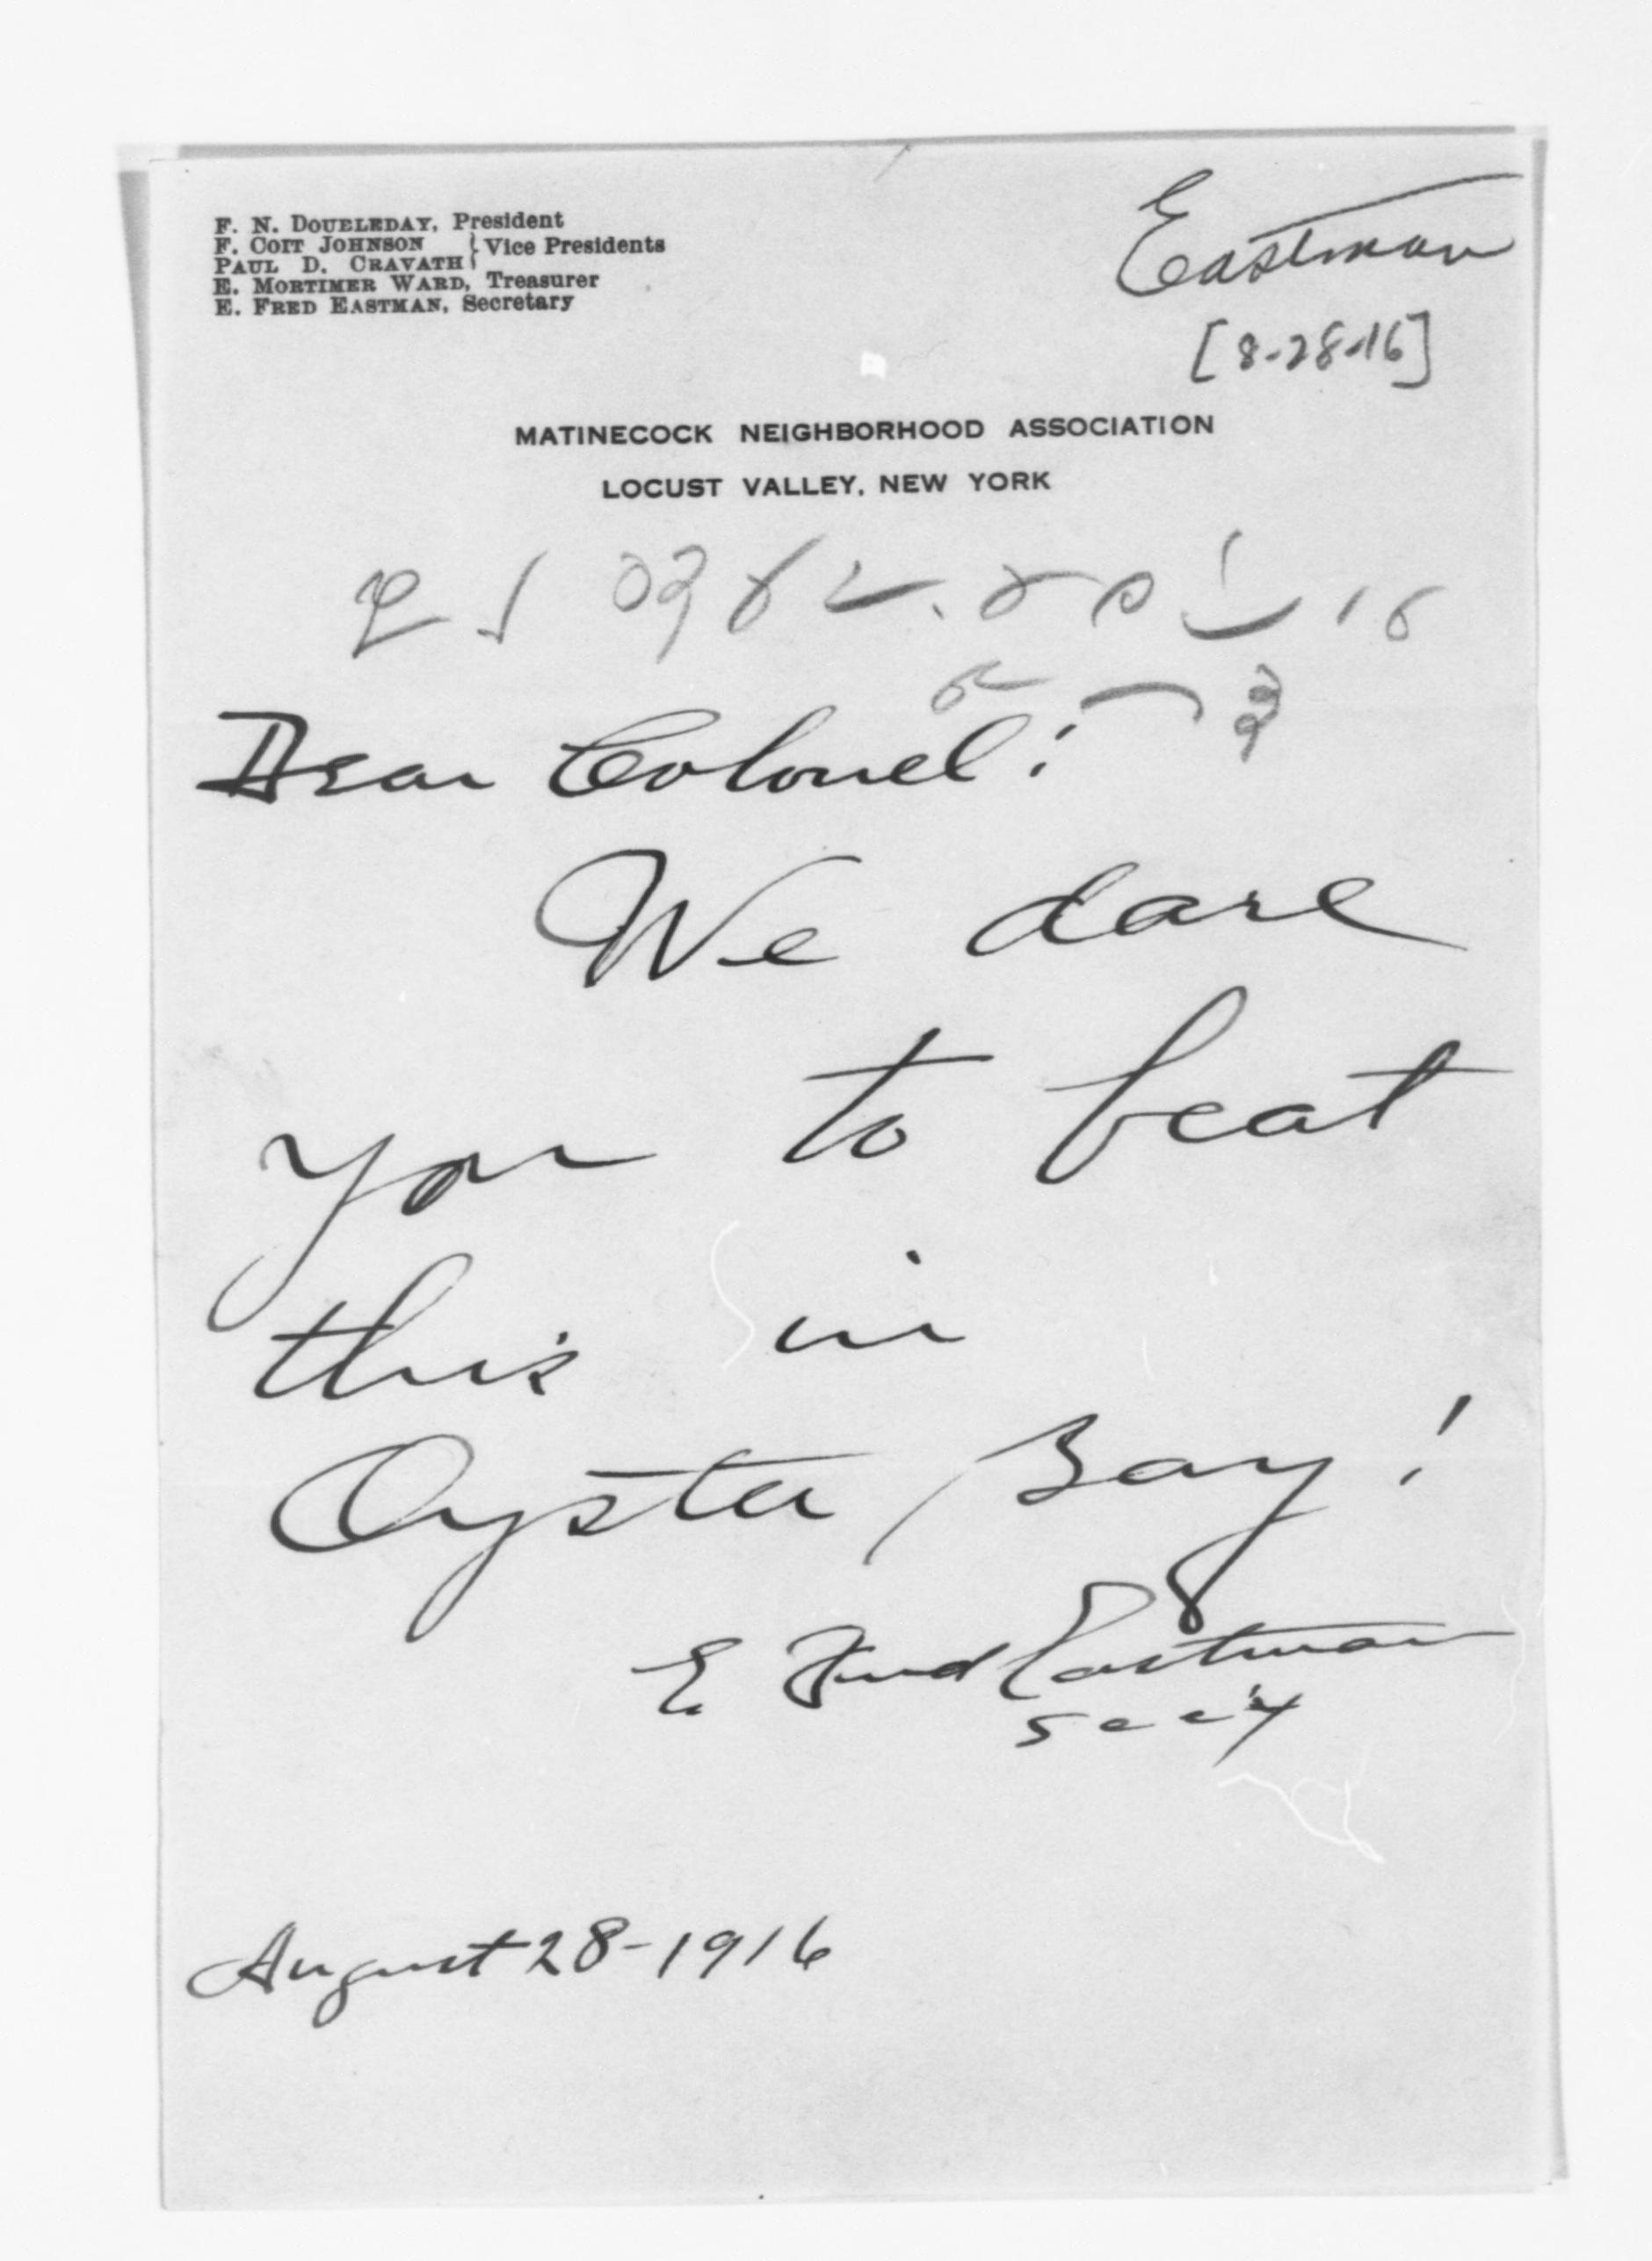 F. N. DOUBLEDAY, President
F. COIT JOHNSON } Vice Presidents
PAUL D. CRAVATH
E. MORTIMER WARD, Treasurer
E. FRED EASTMAN, Secretary
Eastman
[8-28-16]
MATINECOCK NEIGHBORHOOD ASSOCIATION
LOCUST VALLEY, NEW YORK
Dear Colonel:
We dare
you to beat
this in
Oyster Bay!
E Fred Eastman
Sec'y
August 28-1916